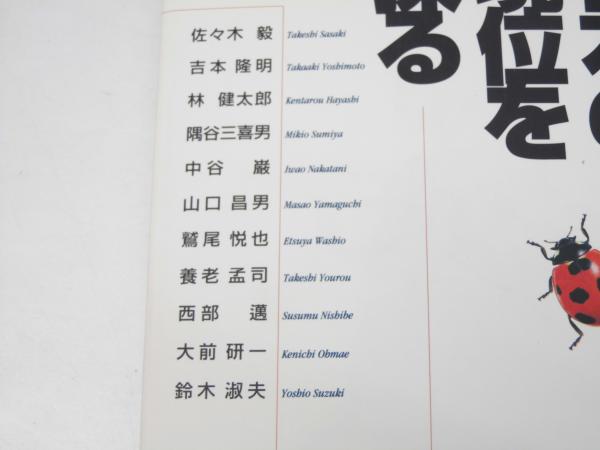 佐々木 毅 Takeshi Sasaki
吉本 隆明 Takaaki Yoshimoto
林 健太郎 Kentarou Hayashi
隅谷三喜男 Mikio Sumiya
中谷 巌 Iwao Nakatani
山口 昌男 Masao Yamaguchi
鷲尾 悦也 Etsuya Washio
養老 孟司 Takeshi Yourou
西部 邁 Susumu Nishibe
大前 研一 Kenichi Ohmae
鈴木 淑夫 Yoshio Suzuki
位を
る